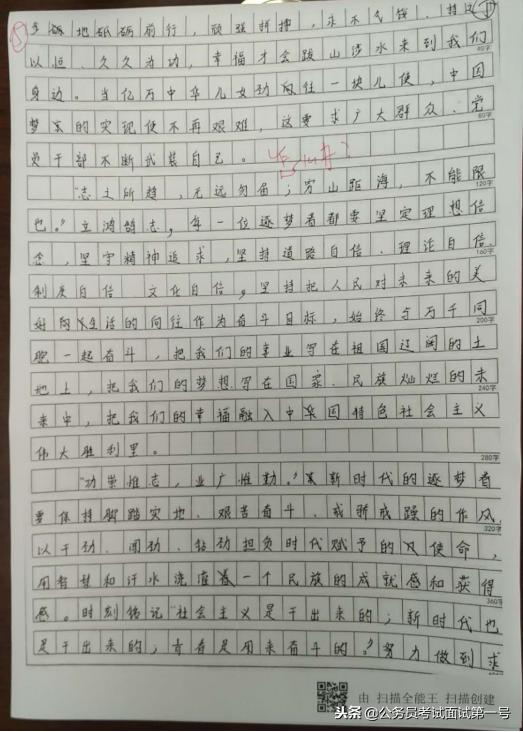 地砥砺前行，顽强拼搏，
以恒、久久为功，幸福才会跋山涉水来到我们
40字
身边。当亿万中华儿女劲向往一块儿使，中国
梦的实现便不再艰难，这要求广大群众、党
80字
员干部不断武装自己。
"志士所趋，无远勿届；穷山距海，不能限
120字
也。"立鸿鹄志，每一位逐梦者都要坚定理想信
念，坚守精神追求，坚持道路自信、理论自信、
160字
制度自信 文化自信，坚持把人民对未来的美
好生活的向往作为奋斗目标，始终与万千同
200字
胞一起奋斗，把我们的事业写在祖国辽阔的土
地上，把我们的梦想写在国家、民族灿烂的未
240字
来中，把我们的幸福融入中华国特色社会主义
伟大胜利里。
280字
"功崇惟志，业广惟勤。"新时代的逐梦者
要保持脚踏实地、艰苦奋斗、戒骄戒躁的作风，
320字
以干劲、闯劲、钻劲担负时代赋予的使命，
用智慧和汗水浇灌一个民族的成就感和获得
360字
感。时刻铭记"社会主义是干出来的；新时代也
是干出来的，青春是用来奋斗的。"努力做到求
由 扫描全能王 扫描创建
头条 @公务员考试面试第一号